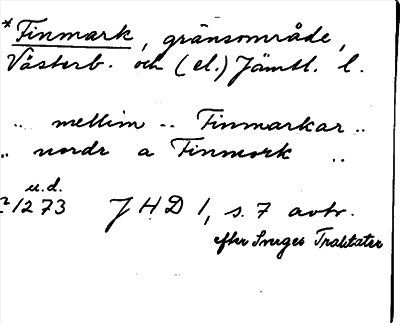 *Finmark, gränsområde,
Västerb. och (el.) Jämtl. l.
.. mellim .. Finmarkar ..
.. nordr a Finmork ..
u.d.
1273 JHD 1, s. 7 avtr.
efter Sveriges Traktater